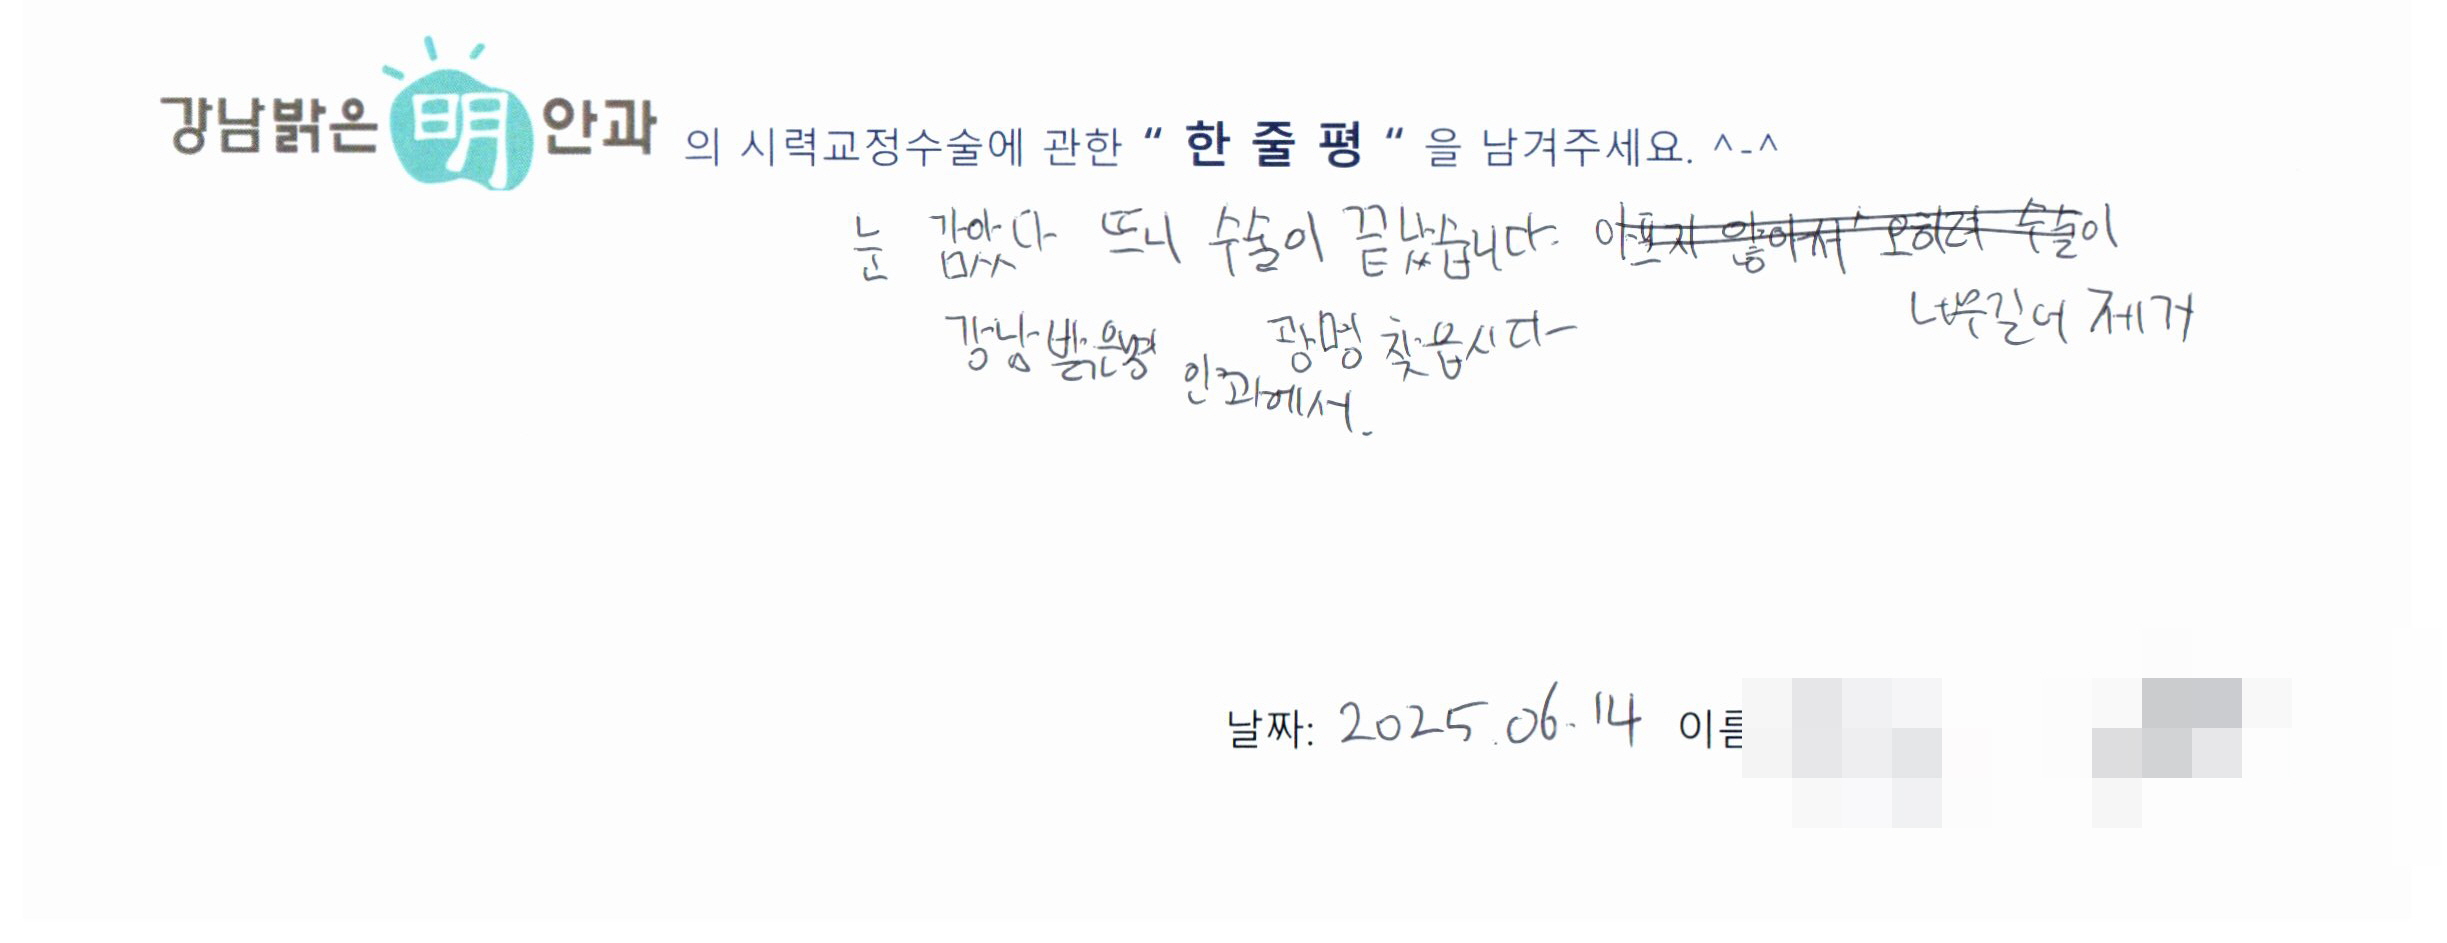 강남밝은明안과 의 시력교정수술에 관한 “ 한 줄 평 “ 을 남겨주세요. ^-^
눈 감았다 뜨니 수술이 끝났습니다. 아프지 않아서 오히려 수술이
너무길어 제거
강남밝은명 광명 찾읍시다
안과에서.
날짜: 2025.06.14 이름